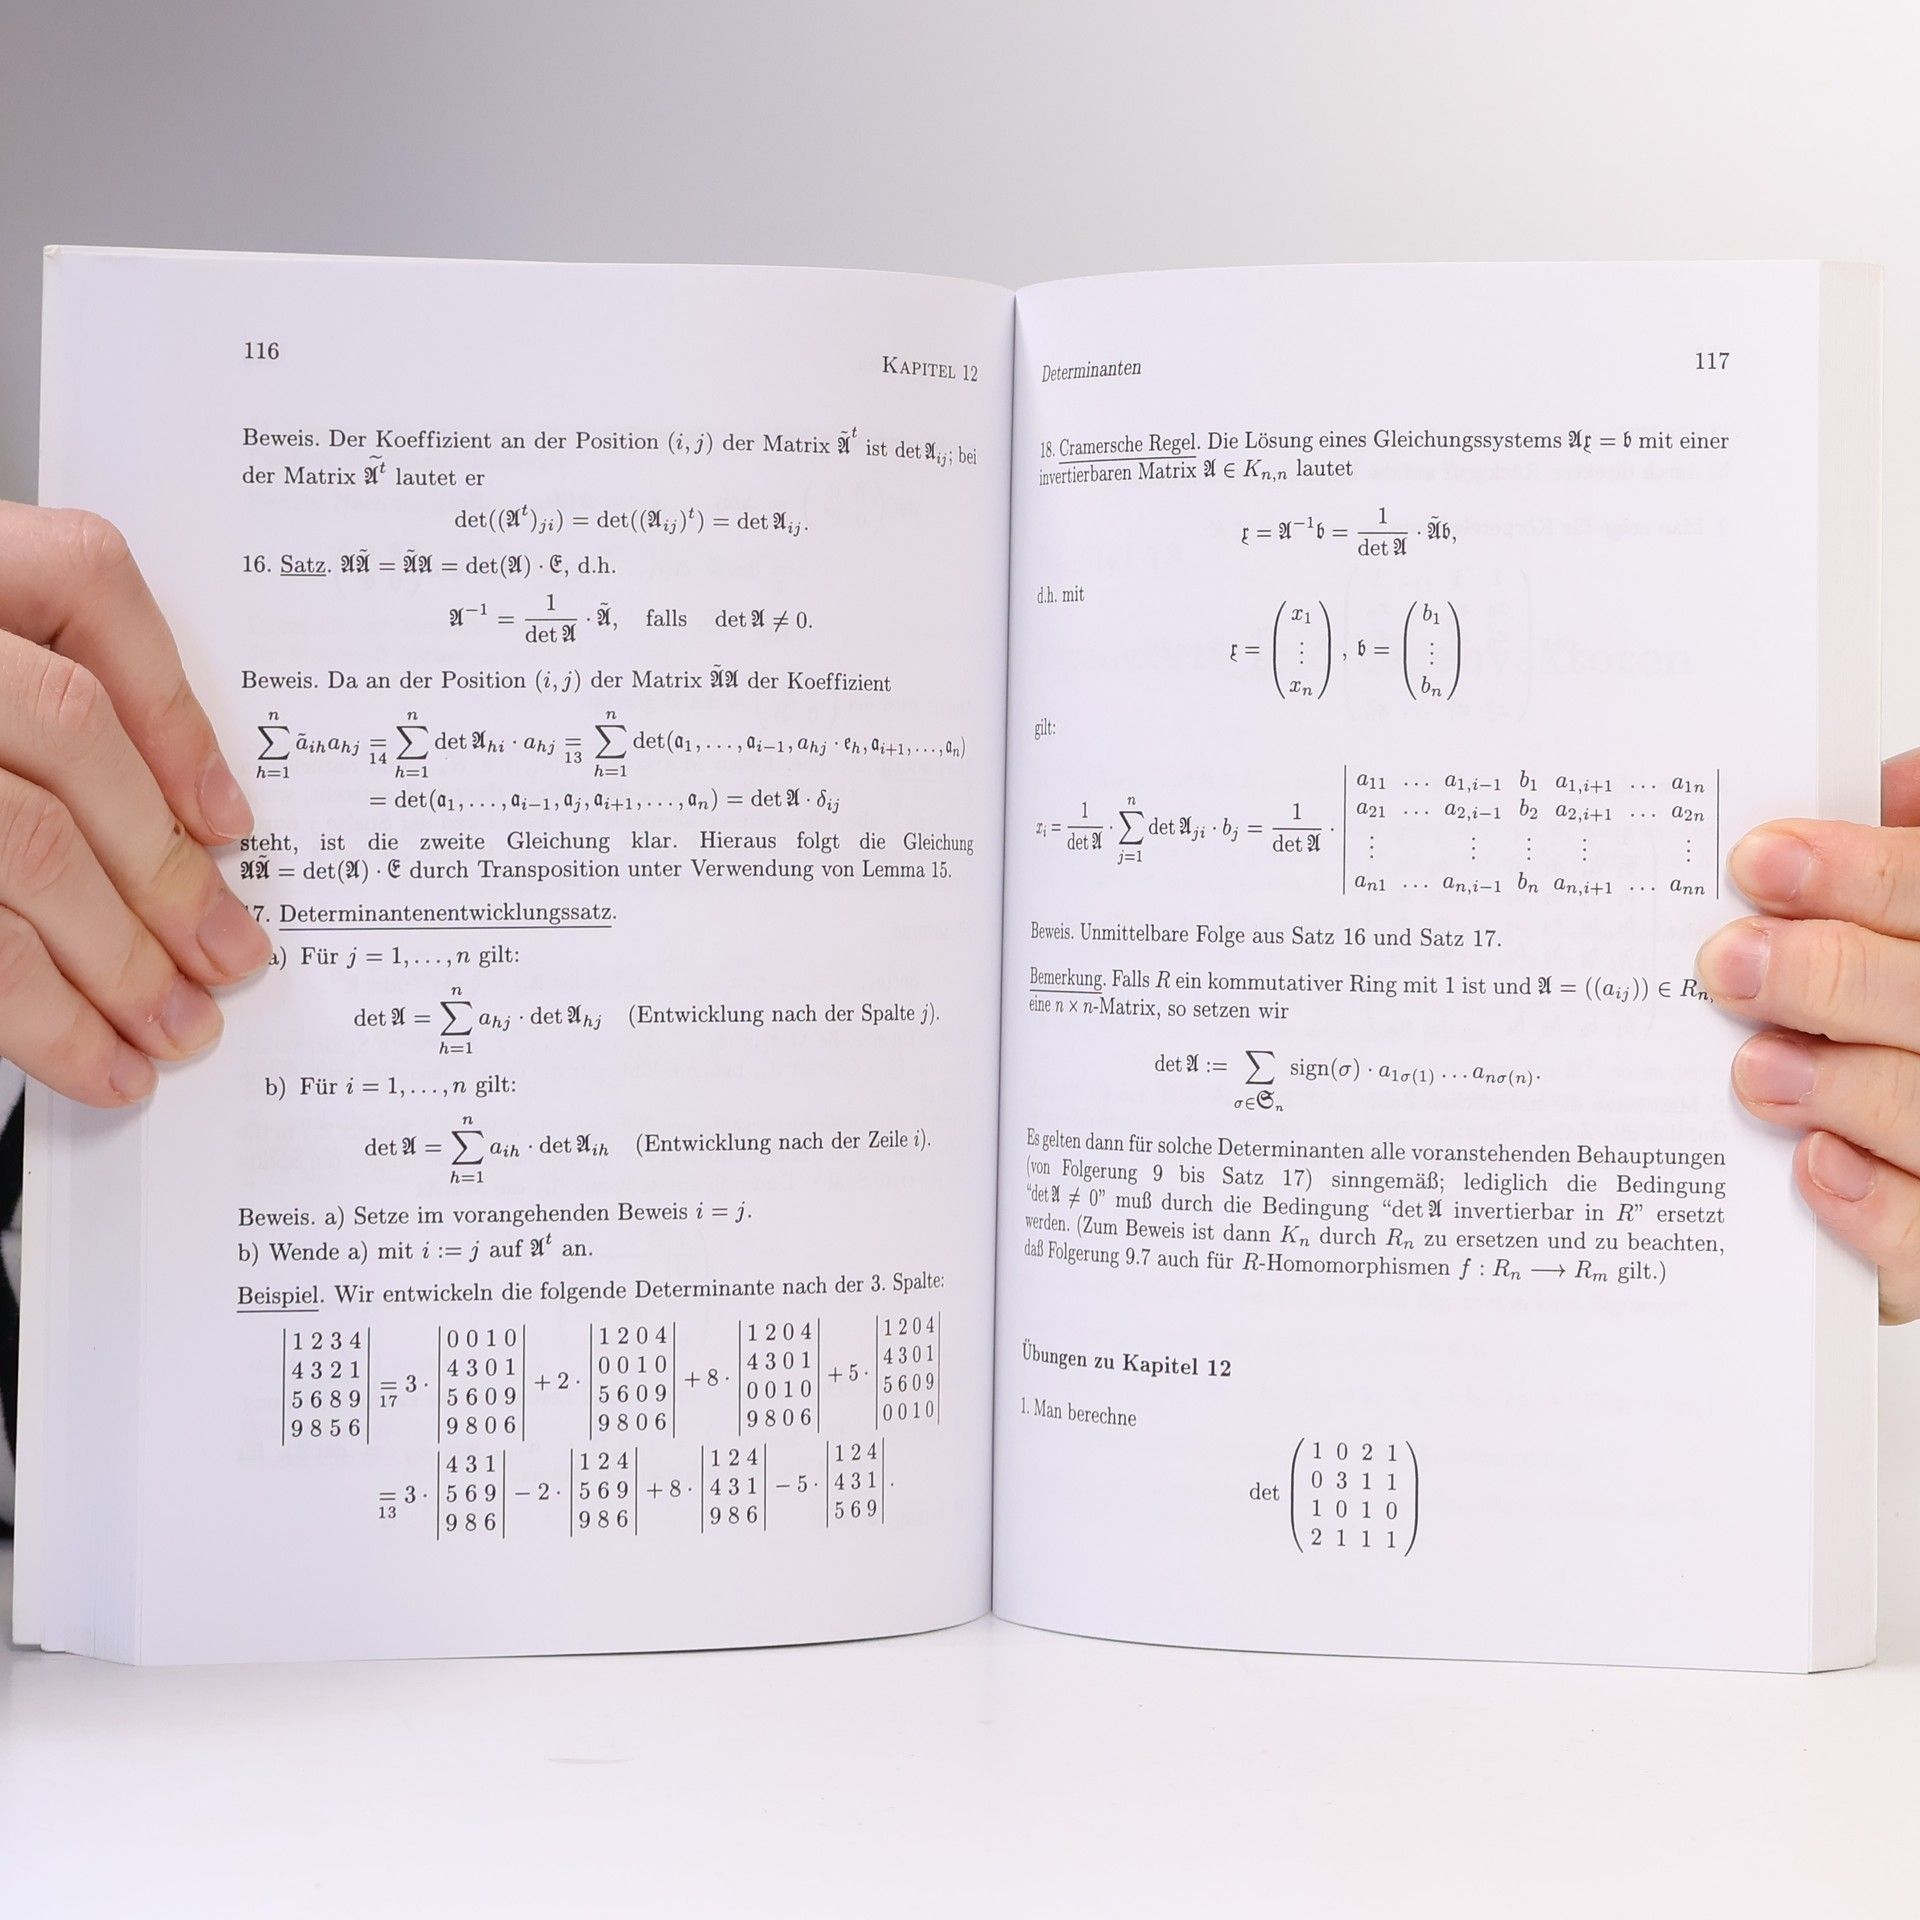 116
KAPITEL 12
Beweis. Der Koeffizient an der Position (i, j) der Matrix 𝔄̃ᵗ ist det 𝔄ᵢⱼ; bei
der Matrix 𝔄̃ᵗ lautet er
det((𝔄ᵗ)ⱼᵢ) = det((𝔄ᵢⱼ)ᵗ) = det 𝔄ᵢⱼ.
16. Satz. 𝔄𝔄̃ = 𝔄̃𝔄 = det(𝔄) · 𝔈, d.h.
𝔄⁻¹ = 1/det 𝔄 · 𝔄̃, falls det 𝔄 ≠ 0.
Beweis. Da an der Position (i, j) der Matrix 𝔄̃𝔄 der Koeffizient
∑_{h=1}^{n} ã_{ih}a_{hj} =_{14} ∑_{h=1}^{n} det 𝔄_{hi} · a_{hj} =_{13} ∑_{h=1}^{n} det(𝔞_1, …, 𝔞_{i−1}, a_{hj} · 𝔢_h, 𝔞_{i+1}, …, 𝔞_n)
= det(𝔞_1, …, 𝔞_{i−1}, 𝔞_j, 𝔞_{i+1}, …, 𝔞_n) = det 𝔄 · δ_{ij}
steht, ist die zweite Gleichung klar. Hieraus folgt die Gleichung
𝔄𝔄̃ = det(𝔄) · 𝔈 durch Transposition unter Verwendung von Lemma 15.
7. Determinantenentwicklungssatz.
a) Für j = 1, …, n gilt:
det 𝔄 = ∑_{h=1}^{n} a_{hj} · det 𝔄_{hj} (Entwicklung nach der Spalte j).
b) Für i = 1, …, n gilt:
det 𝔄 = ∑_{h=1}^{n} a_{ih} · det 𝔄_{ih} (Entwicklung nach der Zeile i).
Beweis. a) Setze im vorangehenden Beweis i = j.
b) Wende a) mit i := j auf 𝔄ᵗ an.
Beispiel. Wir entwickeln die folgende Determinante nach der 3. Spalte:
|1 2 3 4| |0 0 1 0| |1 2 0 4| |1 2 0 4| |1 2 0 4|
|4 3 2 1| |4 3 0 1| |0 0 1 0| |4 3 0 1| |4 3 0 1|
|5 6 8 9| =_{17} 3 · |5 6 0 9| + 2 · |5 6 0 9| + 8 · |0 0 1 0| + 5 · |5 6 0 9|
|9 8 5 6| |9 8 0 6| |9 8 0 6| |9 8 0 6| |0 0 1 0|
|4 3 1| |1 2 4| |1 2 4| |1 2 4|
=_{13} 3 · |5 6 9| − 2 · |5 6 9| + 8 · |4 3 1| − 5 · |4 3 1| .
|9 8 6| |9 8 6| |9 8 6| |5 6 9|
Determinanten
117
18. Cramersche Regel. Die Lösung eines Gleichungssystems 𝔄𝔵 = 𝔟 mit einer
invertierbaren Matrix 𝔄 ∈ K_{n,n} lautet
𝔵 = 𝔄⁻¹𝔟 = 1/det 𝔄 · 𝔄̃𝔟,
d.h. mit
𝔵 = (x_1 ⋮ x_n), 𝔟 = (b_1 ⋮ b_n)
gilt:
|a_{11} … a_{1,i−1} b_1 a_{1,i+1} … a_{1n}|
|a_{21} … a_{2,i−1} b_2 a_{2,i+1} … a_{2n}|
x_i = 1/det 𝔄 · ∑_{j=1}^{n} det 𝔄_{ji} · b_j = 1/det 𝔄 · |⋮ ⋮ ⋮ ⋮ ⋮|
|a_{n1} … a_{n,i−1} b_n a_{n,i+1} … a_{nn}|
Beweis. Unmittelbare Folge aus Satz 16 und Satz 17.
Bemerkung. Falls R ein kommutativer Ring mit 1 ist und 𝔄 = ((a_{ij})) ∈ R_{n,
eine n × n-Matrix, so setzen wir
det 𝔄 := ∑_{σ∈𝔖_n} sign(σ) · a_{1σ(1)} … a_{nσ(n)}.
Es gelten dann für solche Determinanten alle voranstehenden Behauptungen
(von Folgerung 9 bis Satz 17) sinngemäß; lediglich die Bedingung
“det 𝔄 ≠ 0” muß durch die Bedingung “det 𝔄 invertierbar in R” ersetzt
werden. (Zum Beweis ist dann K_n durch R_n zu ersetzen und zu beachten,
daß Folgerung 9.7 auch für R-Homomorphismen f : R_n ⟶ R_m gilt.)
Übungen zu Kapitel 12
1. Man berechne
1 0 2 1
0 3 1 1
det
1 0 1 0
2 1 1 1